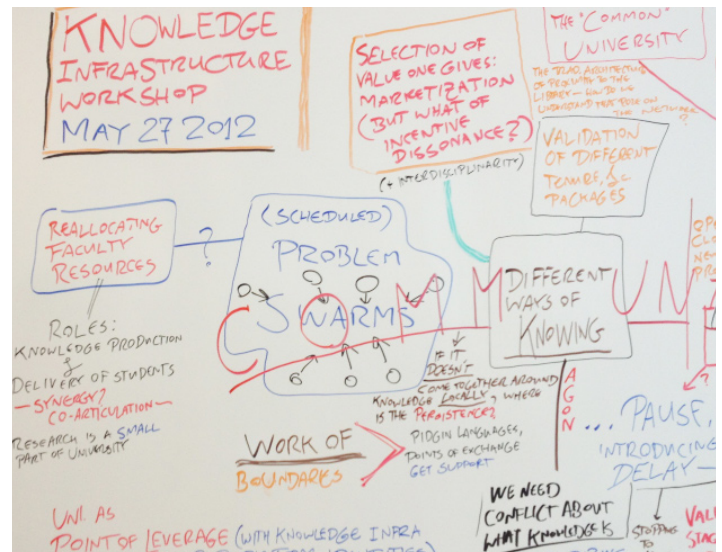 KNOWLEDGE
INFRASTRUCTURE
WORKSHOP
MAY 27 2012
SELECTION OF
VALUE ONE GIVES:
MARKETIZATION
(BUT WHAT OF
INCENTIVE
DISSONANCE?)
(+ INTERDISCIPLINARITY)
THE "COMMON"
UNIVERSITY
THE TRIAD ARCHITECTURE
OF PROXIMITY TO THE
LIBRARY — HOW TO WE
UNDERSTAND
THE NETWORK?
VALIDATION
OF DIFFERENT
TENURE, &c
PACKAGES
REALLOCATING
FACULTY
RESOURCES
?
(SCHEDULED)
PROBLEM
SWARMS
COMMUN
DIFFERENT
WAYS OF
KNOWING
ROLES:
KNOWLEDGE PRODUCTION
&
DELIVERY OF STUDENTS
— SYNERGY?
CO-ARTICULATION —
RESEARCH IS A SMALL
PART OF UNIVERSITY
IF IT
DOESN'T
COME TOGETHER AROUND
KNOWLEDGE LOCALLY, WHERE
IS THE PERSISTENCE?
WORK OF
BOUNDARIES
PIDGIN LANGUAGES,
POINTS OF EXCHANGE
GET SUPPORT
AGON
... PAUSE,
INTRODUCING
DELAY —
?
WE NEED
CONFLICT ABOUT
WHAT KNOWLEDGE IS
STOPPING
TO
UNI. AS
POINT OF LEVERAGE (WITH KNOWLEDGE INFRA